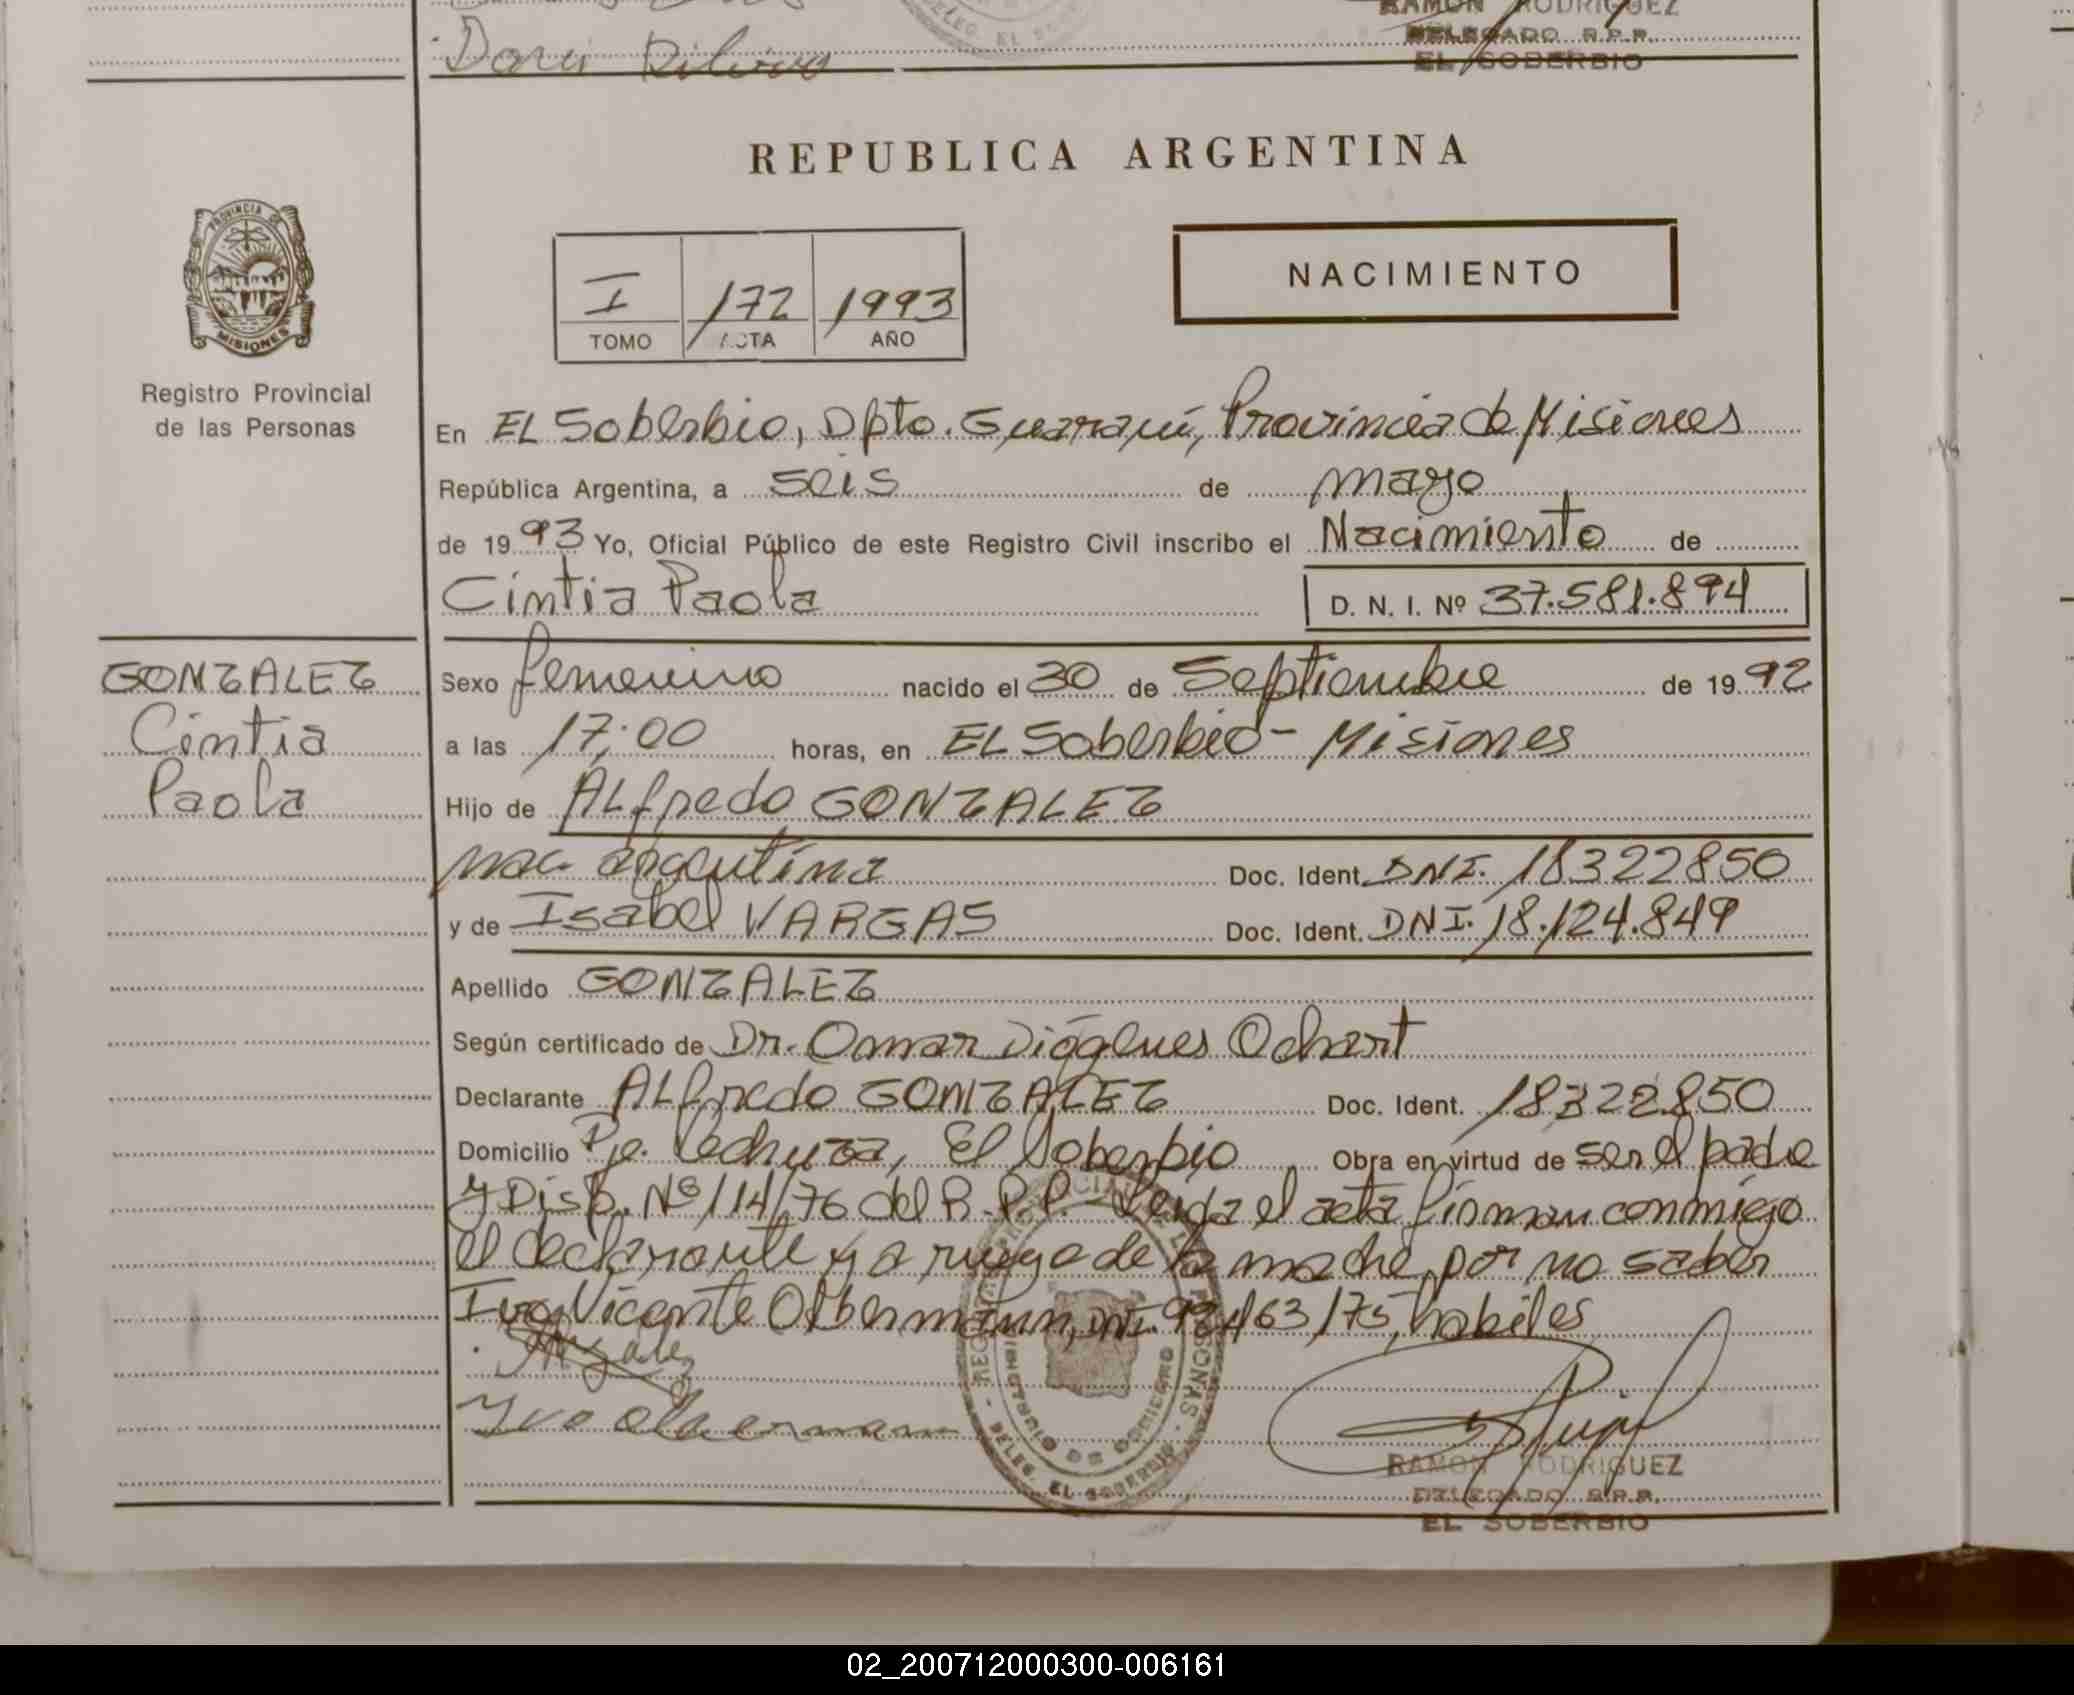 RAMON RODRIGUEZ
DELEGADO R.P.P.
EL SOBERBIO
REPUBLICA ARGENTINA
PROVINCIA DE MISIONES
NACIMIENTO
I /172 1993
TOMO ACTA AÑO
Registro Provincial
de las Personas
En EL Soberbio, Dpto. Guaraní, Provincia de Misiones
República Argentina, a seis de mayo
de 1993 Yo, Oficial Público de este Registro Civil inscribo el Nacimiento de
Cintia Paola D. N. I. Nº 37.581.894
GONZALEZ
Cintia
Paola
Sexo femenino nacido el 30 de Septiembre de 1992
a las 17:00 horas, en EL Soberbio - Misiones
Hijo de ALfredo GONZALEZ
nac. argentina Doc. Ident. DNI. 18322850
y de Isabel VARGAS Doc. Ident. DNI. 18.124.849
Apellido GONZALEZ
Según certificado de Dr. Omar Diógenes Ochart
Declarante ALfredo GONZALEZ Doc. Ident. 18322850
Domicilio Pje. Lechuza, El Soberbio Obra en virtud de ser el padre
y Disp. Nº 114/76 del R.P.P. Leída el acta firman conmigo
el declarante y a ruego de la madre, por no saber
Ivo Vicente Olbermann, hábiles
Ivo Olbermann
RAMON RODRIGUEZ
DELEGADO R.P.P.
EL SOBERBIO
02_200712000300-006161